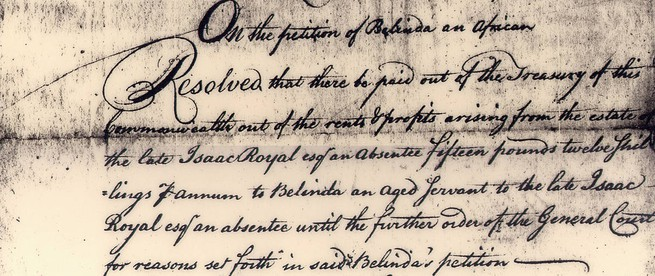 On the petition of Belinda an African
Resolved that there be paid out of the Treasury of this
Commonwealth out of the rents & profits arising from the estate of
the late Isaac Royal esqr an absentee fifteen pounds twelve Shil
=lings ⅌ annum to Belinda an aged Servant to the late Isaac
Royal esqr an absentee until the further order of the General Court
for reasons set forth in said Belinda's petition —